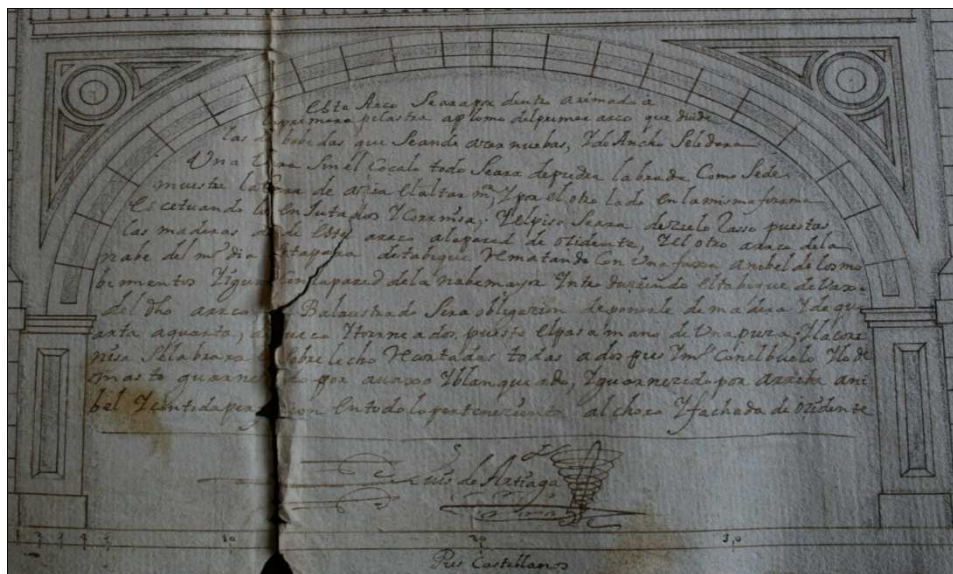 Este Arco Seara por dentro arimado a
primera pilastra aplomo del primer arco que diuide
las bobedas que Seande açer nuebas, Y de Ancho Seledara
Una Vara Sin el Çocalo todo Seara de piedra labrada Como Sede
muestra la Cara de açia el altar mr, Y por el otro lado en la misma forma
Escetuando los enJutados Y Corniza; Y el piso Seara de zielo Rasso puestas
las maderas desde este araco a la pared de ozidente, Y el otro araco de la
nabe del mº dia Setapara de tabique Rematando Con Una faxa anibel de los mo
bimientos Y Con la pared de la nabe mayor Introduziendo el tabique de
del dho araco Balaustrado Sera obligazion de ponerle de madera Y de qu
arta aquarta, Y torneados, puesto el pasamano de Una pieza, Y la cor
nisa Se labrara Sobre lecho Recortadas todas a dos pies Y mº Con el buelo Y lo de
mas to guarnezido por auaxo Y blanqueado, Y guarnezido por arriba ani
bel Y Con toda perfezion En todo lo perteneziente al choro Y fachada de ozidente
Luis de Artiaga
1 2 3 4 5 10 20 30
Pies Castellanos